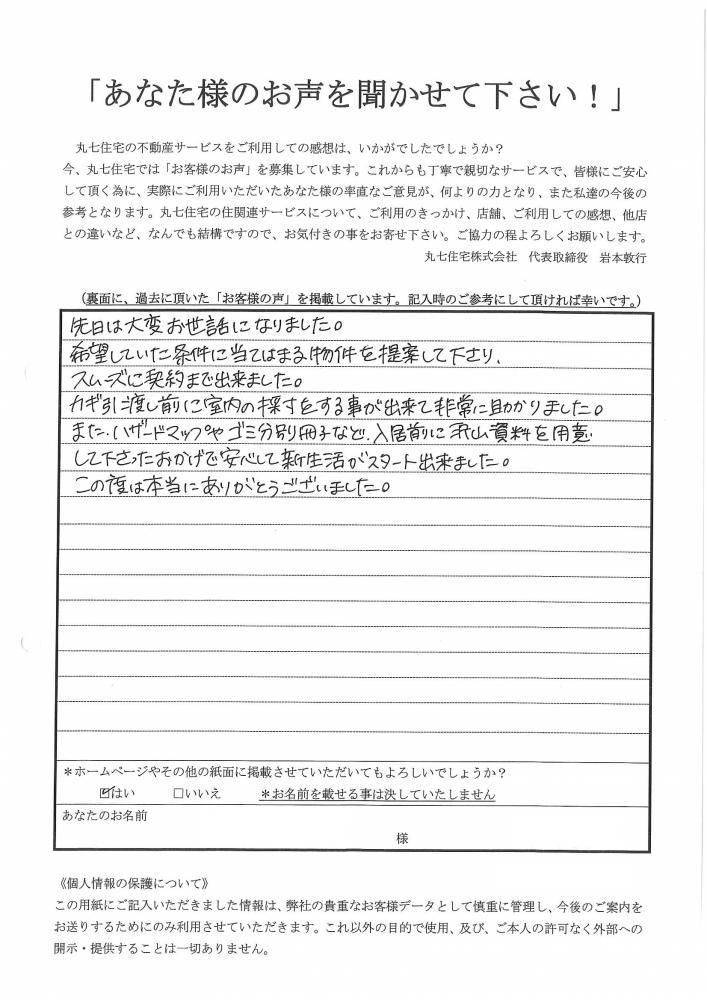 「あなた様のお声を聞かせて下さい！」
丸七住宅の不動産サービスをご利用しての感想は、いかがでしたでしょうか？
今、丸七住宅では「お客様のお声」を募集しています。これからも丁寧で親切なサービスで、皆様にご安心
して頂く為に、実際にご利用いただいたあなた様の率直なご意見が、何よりの力となり、また私達の今後の
参考となります。丸七住宅の住関連サービスについて、ご利用のきっかけ、店舗、ご利用しての感想、他店
との違いなど、なんでも結構ですので、お気付きの事をお寄せ下さい。ご協力の程よろしくお願いします。
丸七住宅株式会社　代表取締役　岩本敦行
（裏面に、過去に頂いた「お客様の声」を掲載しています。記入時のご参考にして頂ければ幸いです。）
先日は大変お世話になりました。
希望していた条件に当てはまる物件を提案して下さり、
スムーズに契約まで出来ました。
カギ引渡し前に室内の採寸をする事が出来て非常に助かりました。
また、ハザードマップやゴミ分別冊子など、入居前に沢山資料を用意
して下さったおかげで安心して新生活がスタート出来ました。
この度は本当にありがとうございました。
＊ホームページやその他の紙面に掲載させていただいてもよろしいでしょうか？
☑はい　□いいえ　＊お名前を載せる事は決していたしません
あなたのお名前
様
《個人情報の保護について》
この用紙にご記入いただきました情報は、弊社の貴重なお客様データとして慎重に管理し、今後のご案内を
お送りするためにのみ利用させていただきます。これ以外の目的で使用、及び、ご本人の許可なく外部への
開示・提供することは一切ありません。